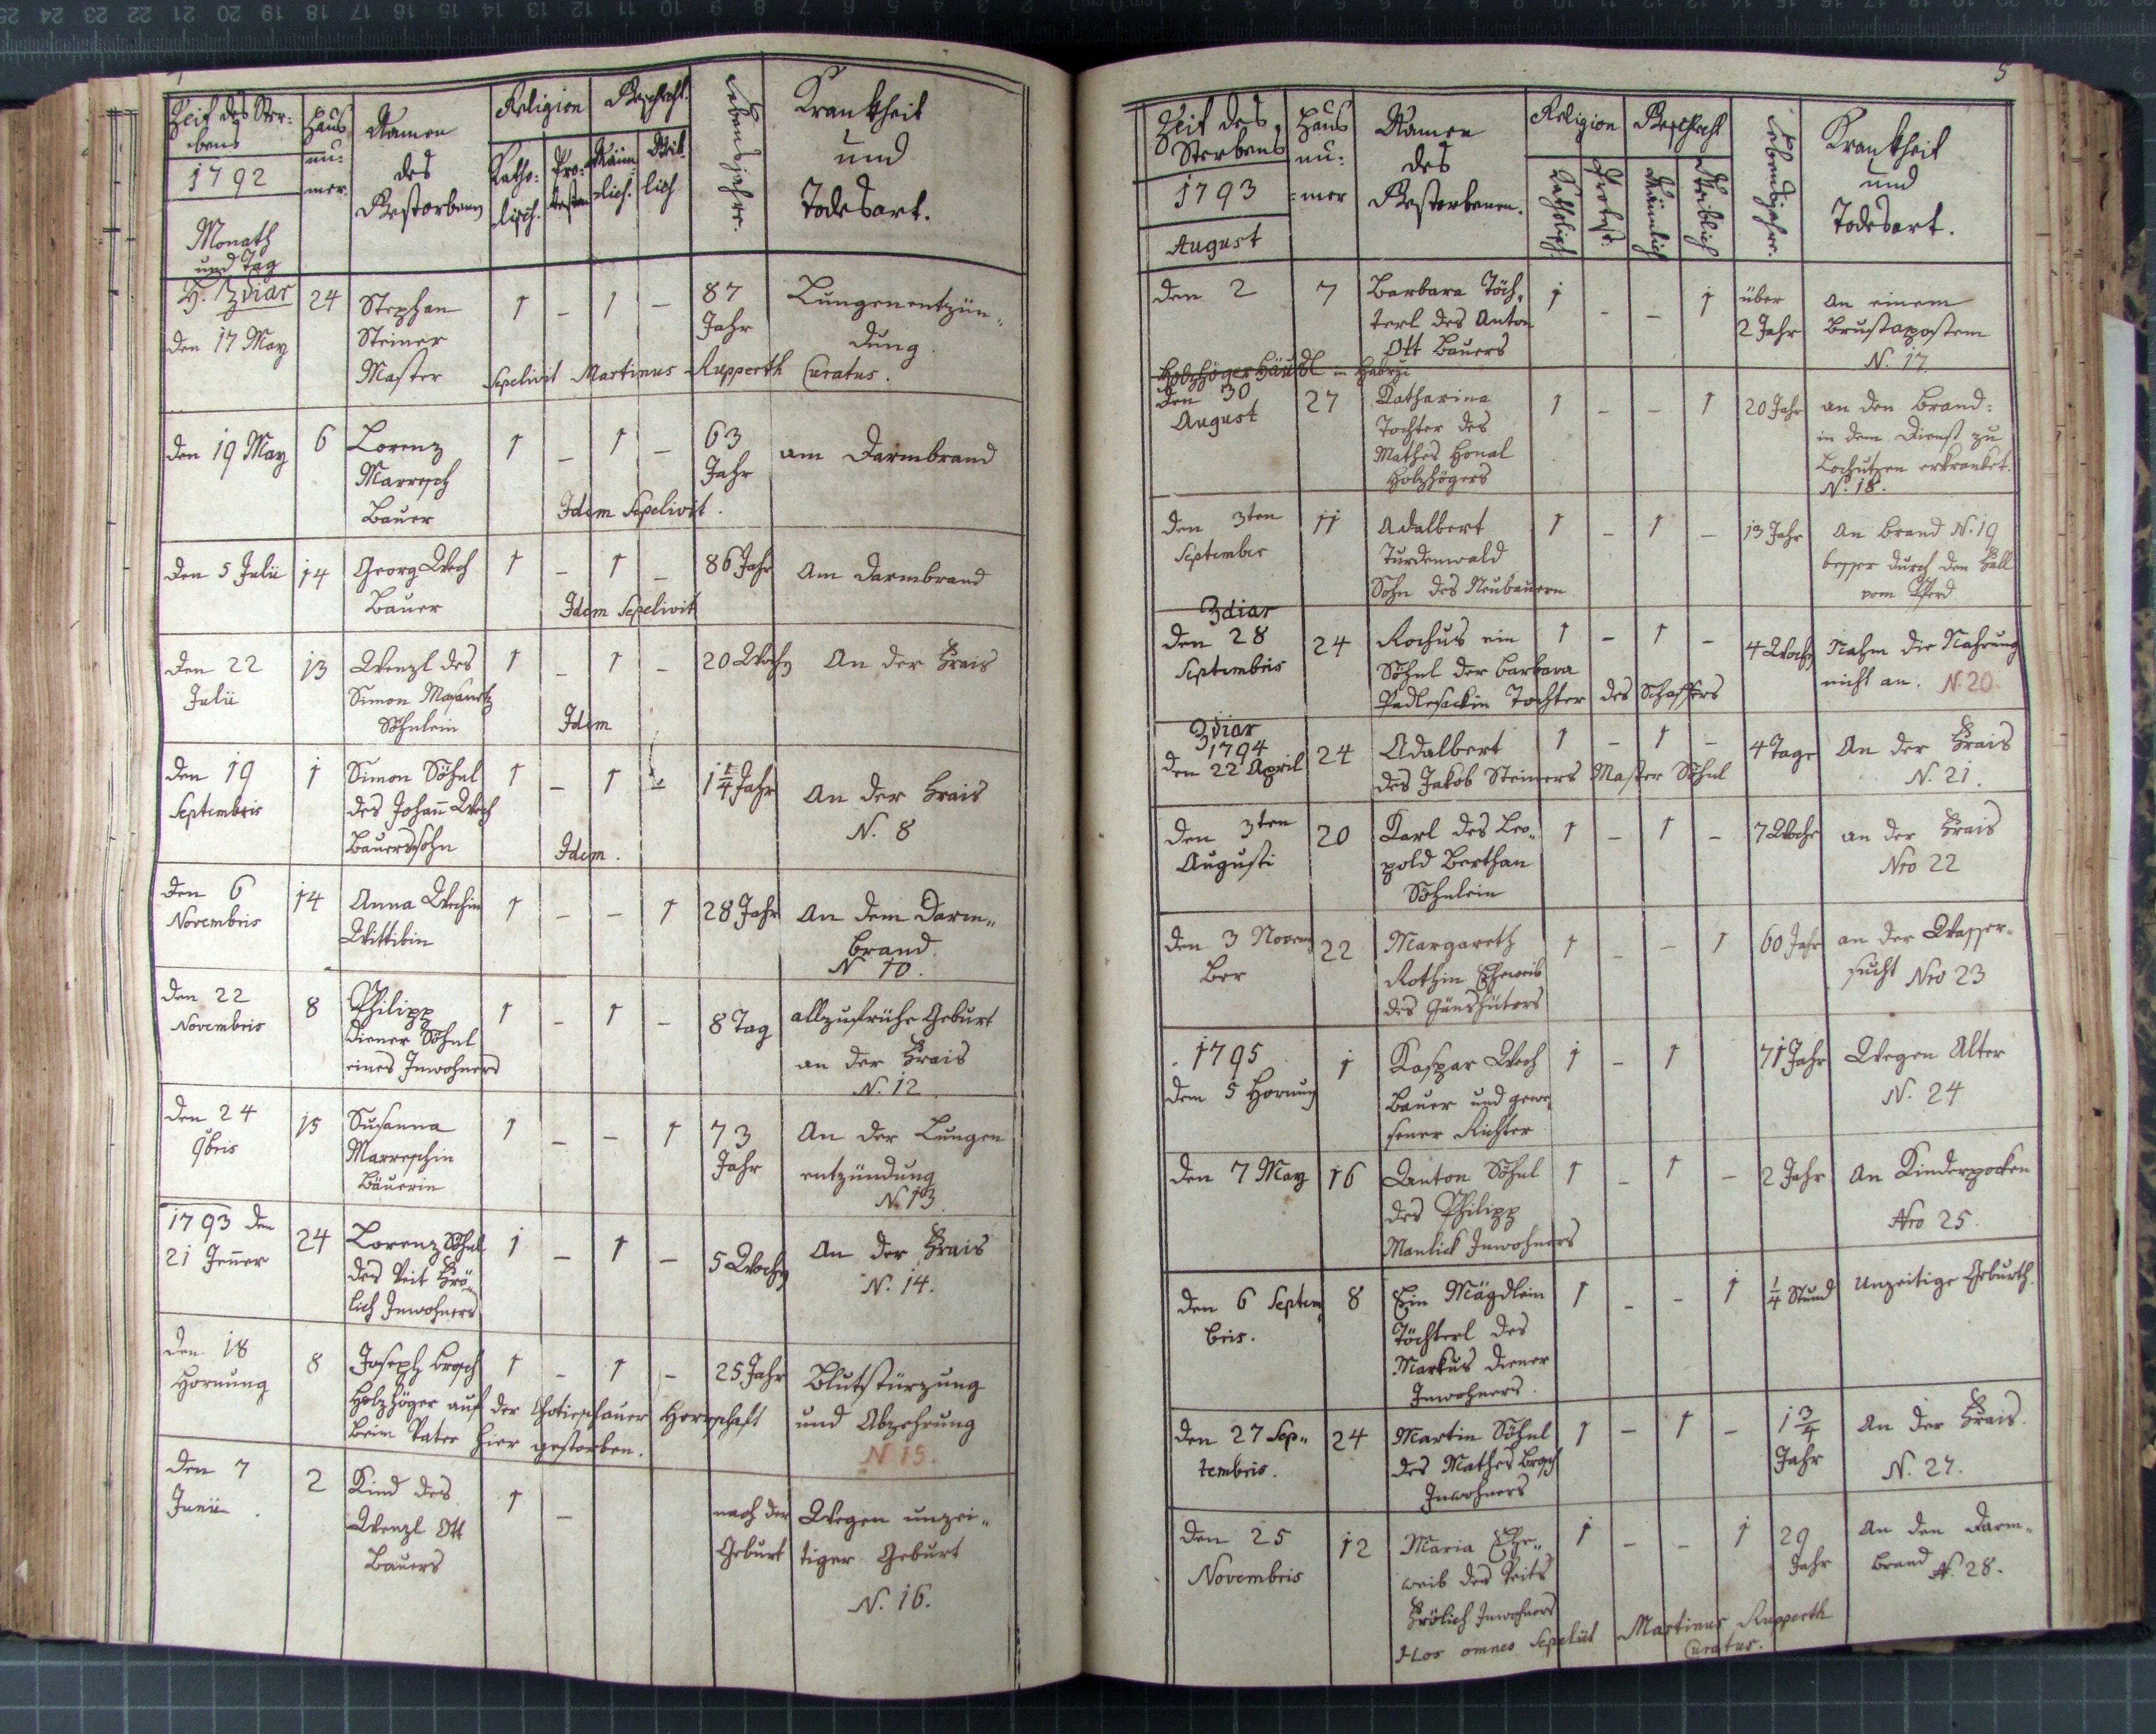 Zeit des Ster-
bens
1792
Monath
und Tag
Haus
nu-
mer.
Namen
des
Gestorbenen
Religion
Katho-
lisch.
Pro-
testan
Geschlecht.
Män-
lich.
Wei-
lich
Lebensjahre.
Krankheit
und
Todesart.
Zdiar
den 17 May
24
Stephan
Steiner
Master
1 – 1 –
87
Jahr
Lungenentzün-
dung
Sepelivit Martinus Rupperth Curatus.
den 19 May
6
Lorenz
Marresch
Bauer
1 – 1 –
63
Jahr
am Darmbrand
Idem Sepelivit.
den 5 Julii
14
Georg Wech
Bauer
1 – 1 –
86 Jahr
Am Darmbrand
Idem Sepelivit
den 22
Julii
13
Wenzl des
Simon
Söhnlein
1 – 1 –
20 Wochen
An der Frais
Idem
den 19
Septembris
1
Simon Söhnl
des Johañ Wech
Bauerssohn
1 – 1 –
1 1/4 Jahr
An der Frais
N. 8
Idem.
den 6
Novembris
14
Anna Wechin
Wittibin
1 – – 1
28 Jahr
An dem Darm-
brand.
N 10.
den 22
Novembris
8
Philipp
Diener Söhnl
eines Inwohners
1 – 1 –
8 Tag
allzufrühe Geburt
an der Frais
N. 12.
den 24
9bris
15
Susanna
Marreschin
Bäuerin
1 – – 1
73
Jahr
An der Lungen
entzündung
N. 13.
1793 den
21 Jeñer
24
Lorenz Söhnl
des Veit Frö-
lich Inwohners
1 – 1 –
5 Wochen
An der Frais
N. 14.
den 18
Hornung
8
Joseph Brosch
Holzhöger auf der Chotieschauer Herrschaft
beim Vater hier gestorben.
1 – 1 –
25 Jahr
Blutstürzung
und Abzehrung
N 15.
den 7
Junii
2
Kind des
Wenzl Ott
Bauers
1 –
nach der
Geburt
Wegen unzei-
tiger Geburt
N. 16.
5
Zeit des
Sterbens
1793
August
Haus
nu-
mer
Namen
des
Gestorbenen.
Religion
Katholisch.
Protest:
Geschlecht
Männlich
Weiblich
Lebensjahre.
Krankheit
und
Todesart.
den 2
7
Barbara Töch-
terl des Anton
Ott Bauers
1 – – 1
über
2 Jahr
An einem
Brustapostem
N. 17.
Holzhöger Häusl in
den 30
August
27
Katharina
Tochter des
Mathes Honal
Holzhögers
1 – – 1
20 Jahr
an den Brand:
in dem Dienst zu
Lochutzen erkranket.
N. 18.
den 3ten
September
11
Adalbert
Turdenwald
Sohn des Neubauern
1 – 1 –
13 Jahr
An Brand N. 19
besser durch den Fall
vom Pferd
Zdiar
den 28
Septembris
24
Rochus ein
Söhnl der Barbara
Padlesackin Tochter des Schaffers
1 – 1 –
4 Wochen
Nahm die Nahrung
nicht an. N. 20.
Zdiar
1794
den 22 April
24
Adalbert
des Jakob Steiners Master Söhnl
1 – 1 –
4 Tage
An der Frais
N. 21.
den 3ten
Augusti
20
Karl des Leo-
pold Berthan
Söhnlein
1 – 1 –
7 Wochen
an der Frais
Nro 22
den 3 Novem
ber
22
Margareth
Rothin Eheweib
des Gänshüters
1 – – 1
60 Jahr
an der Wasser-
sucht Nro 23
1795
dem 5 Hornung
1
Kaspar Wech
Bauer und gewe-
sener Richter
1 – 1
71 Jahr
Wegen Alter
N. 24
den 7 May
16
Anton Söhnl
des Philipp
Manlick Inwohners
1 – 1 –
2 Jahr
An Kinderpocken
Nro 25.
den 6 Septem
bris.
8
Ein Mägdlein
Töchterl des
Markus Diener
Inwohners.
1 – – 1
1/4 Stund
Unzeitige Geburth.
den 27 Sep-
tembris.
24
Martin Söhnl
des Mathes Brosch
Inwohners
1 – 1 –
1 3/4
Jahr
An der Frais.
N. 27.
den 25
Novembris
12
Maria Ehe-
weib des Veits
Frölich Inwohners
1 – – 1
29
Jahr
An den Darm-
brand N. 28.
Hos omnes Sepeliit Martinus Rupperth
Curatus.